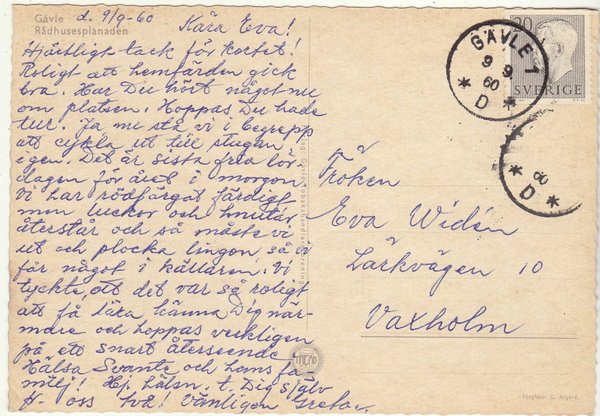 Gävle d. 9/9-60
Rådhusesplanaden
Kära Eva!
Hjärtligt tack för kortet!
Roligt att hemfärden gick
bra. Har Du hört något nu
om platsen. Hoppas Du hade
tur. Ja nu stå vi i begrepp
att cykla ut till stugan
igen. Det är sista fria lör
dagen för året i morgon
Vi har rödfärgat färdigt
men luckor och knutar
återstar och så måste vi
ut och plocka lingon, så vi
får något i källaren. Vi
tyckte, att det var så roligt
att få lära känna Dig när-
mare och hoppas verkligen
på ett snart återseende
Hälsa Svante och hans fa
milj! Hj. hälsn. t. Dig själv
fr. oss två! Vänligen Greta.
Fröken
Eva Widén
Lärkvägen 10
Vaxholm
20
SVERIGE
GÄVLE 1
9 9
60
* D *
60
* D *
Färgfoto: G. Algård.